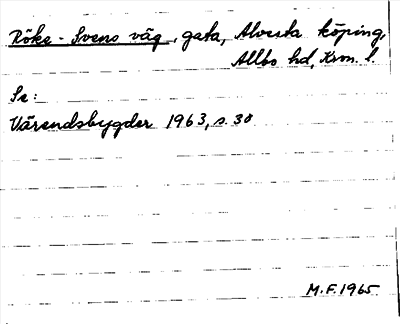 Röke-Svens väg, gata, Alvesta köping,
Allbo hd, Kron. l.
Se:
Värendsbygder 1963, s. 38
M.F. 1965